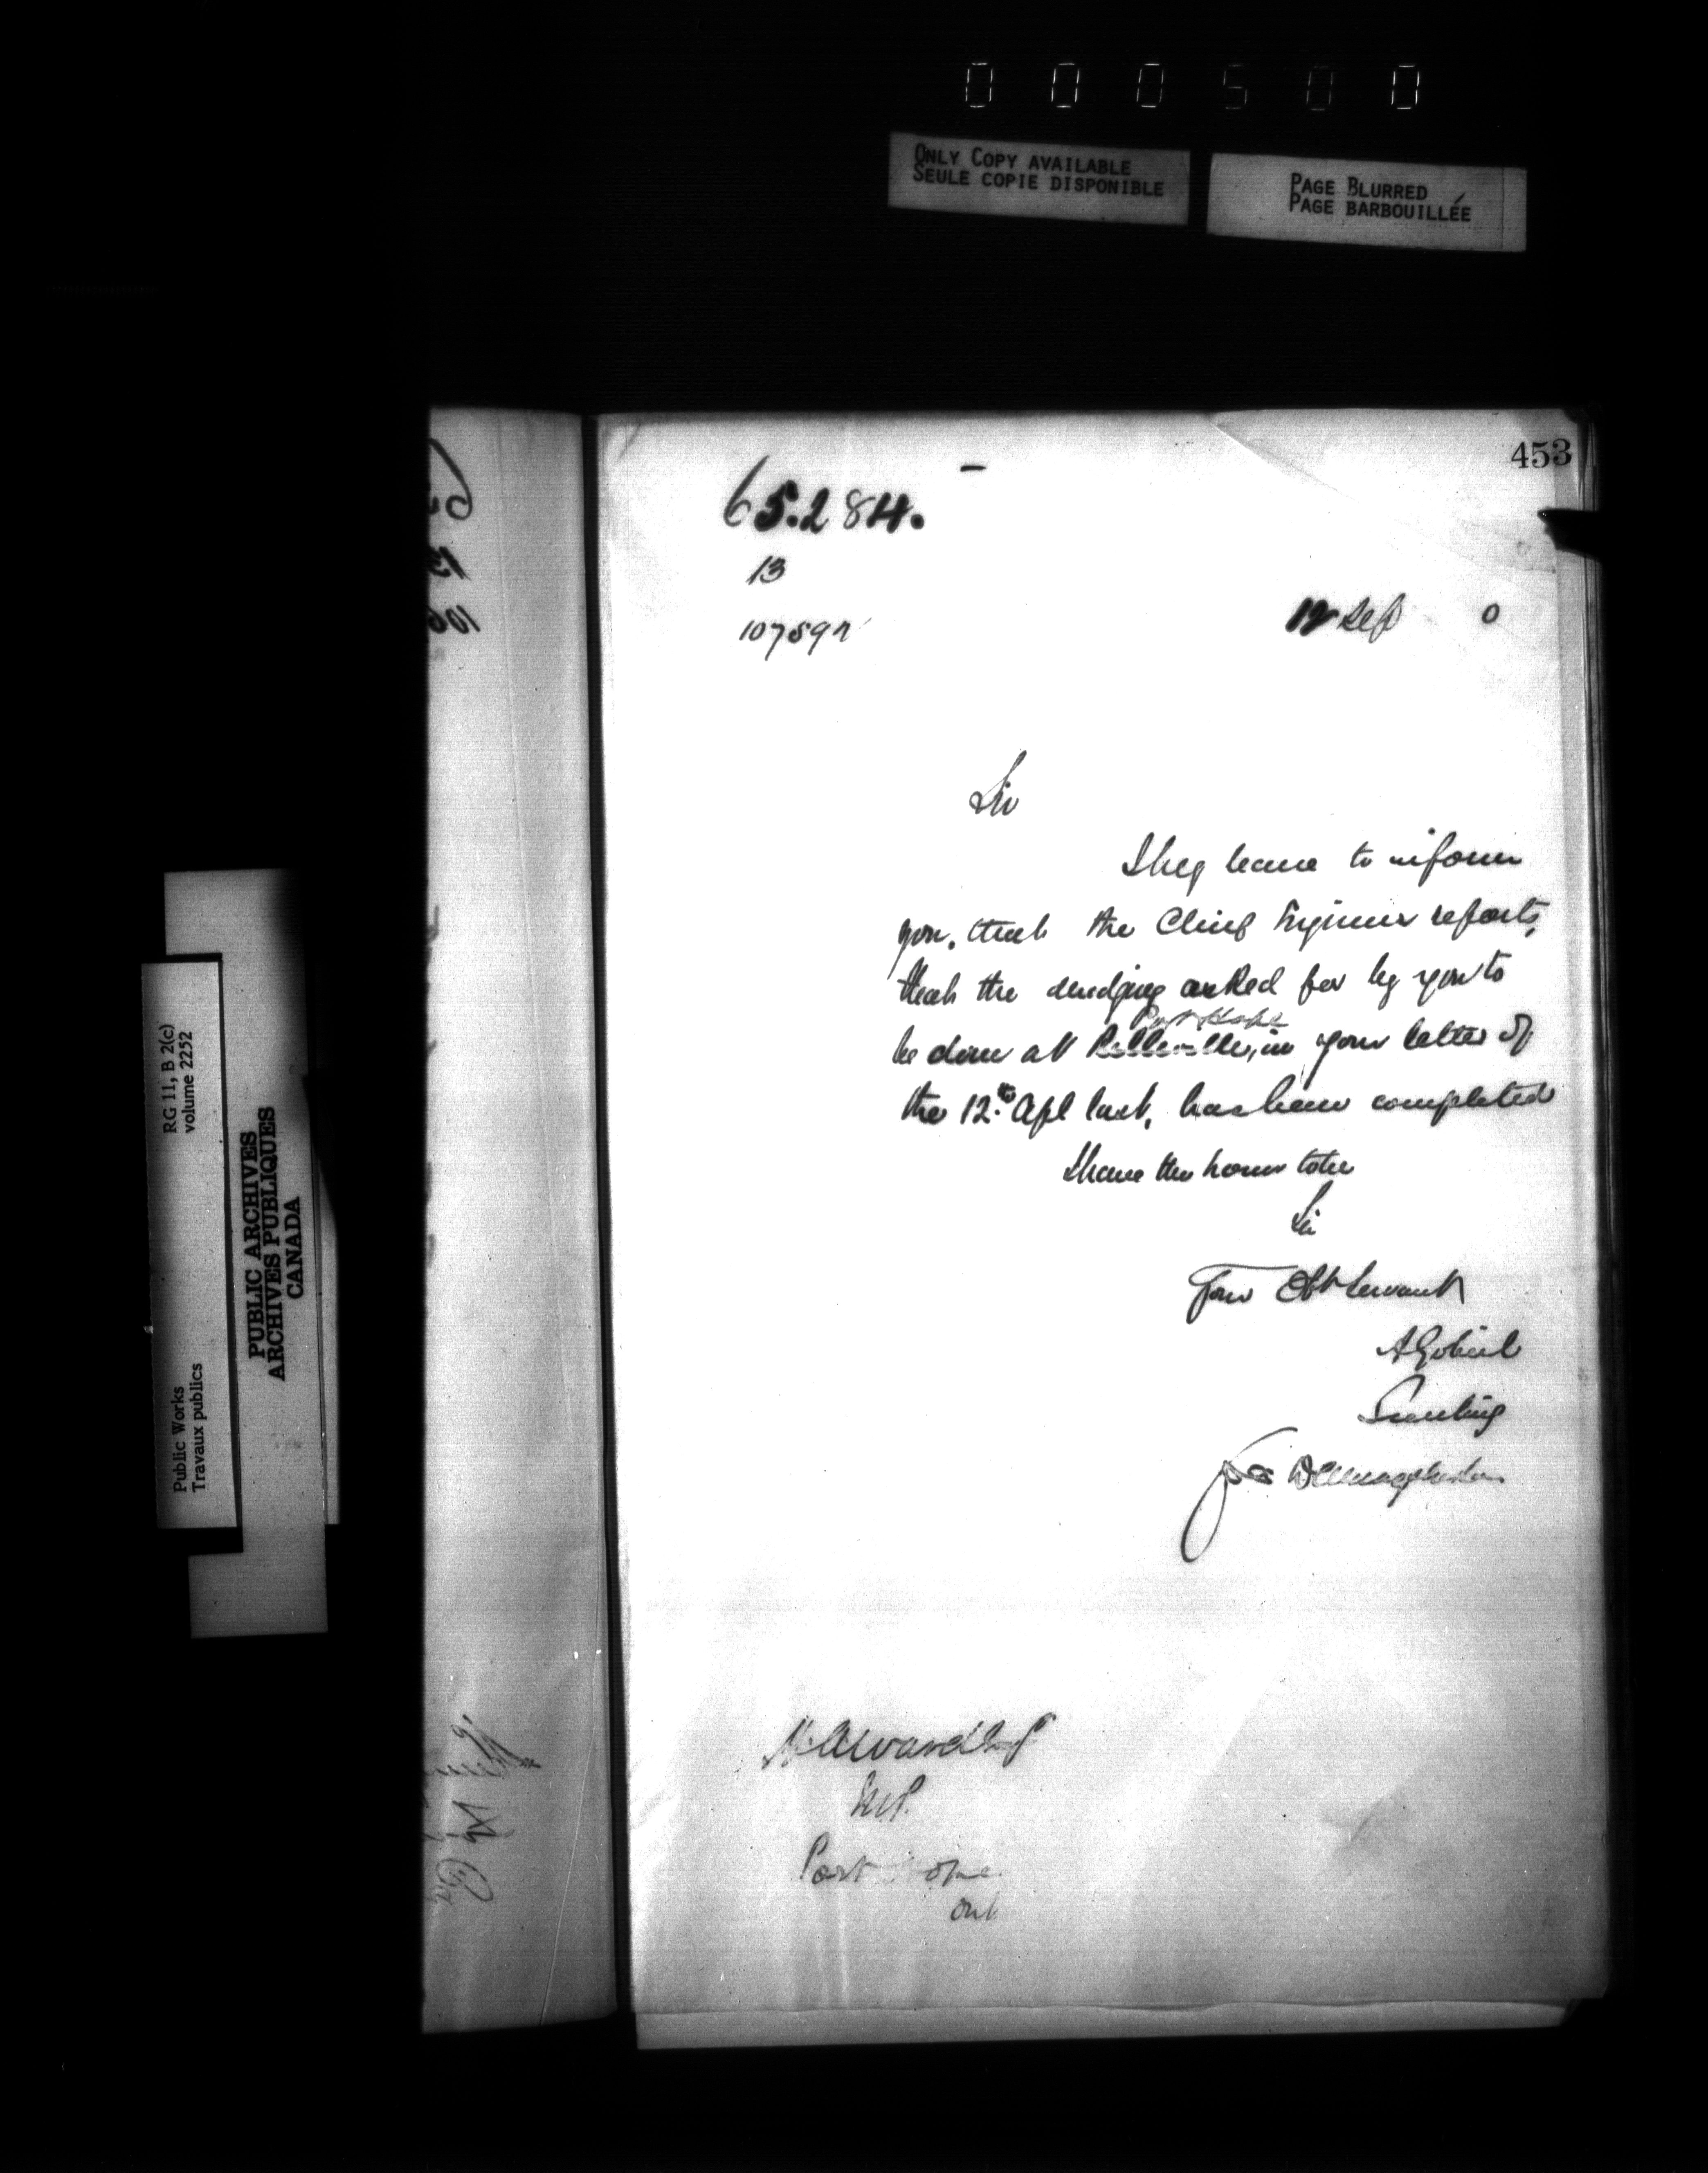 000500
ONLY COPY AVAILABLE
SEULE COPIE DISPONIBLE
PAGE BLURRED
PAGE BARBOUILLÉE
453
65.284.
13
107597
12 Sep 0
Sir
I beg leave to inform
you, that the Chief Engineer reports,
that the dredging asked for by you to
Port Hope
be done at Belleville, in your letter of
the 12th Apl last, has been completed
I have the honor to be
Sir
Your Obt Servant
A Gobeil
Secretary
for
H. A. Ward Esq
M.P.
Port Hope
Ont
RG 11, B 2(c)
volume 2252
Public Works
Travaux publics
PUBLIC ARCHIVES
ARCHIVES PUBLIQUES
CANADA